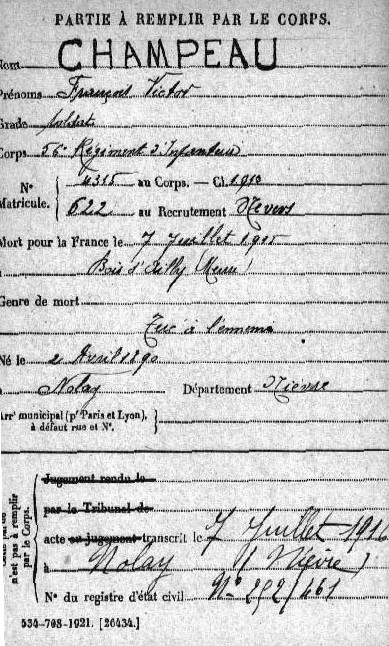 PARTIE À REMPLIR PAR LE CORPS.
Nom CHAMPEAU
Prénoms François Victor
Grade soldat
Corps 56e Régiment d'Infanterie
N° Matricule. 4315 au Corps. — Cl. 1910
622 au Recrutement Nevers
Mort pour la France le 7 Juillet 1915
à Bois d'Ailly (Meuse)
Genre de mort
Tué à l'ennemi
Né le 2 Avril 1890
à Nolay Département Nièvre
Arrt municipal (pr Paris et Lyon),
à défaut rue et N°.
Cette partie n'est pas à remplir par le Corps.
Jugement rendu le
par le Tribunal de
acte ou jugement transcrit le 7 Juillet 1916
à Nolay (Nièvre)
N° du registre d'état civil N° 292/461
534-708-1921. [26434.]